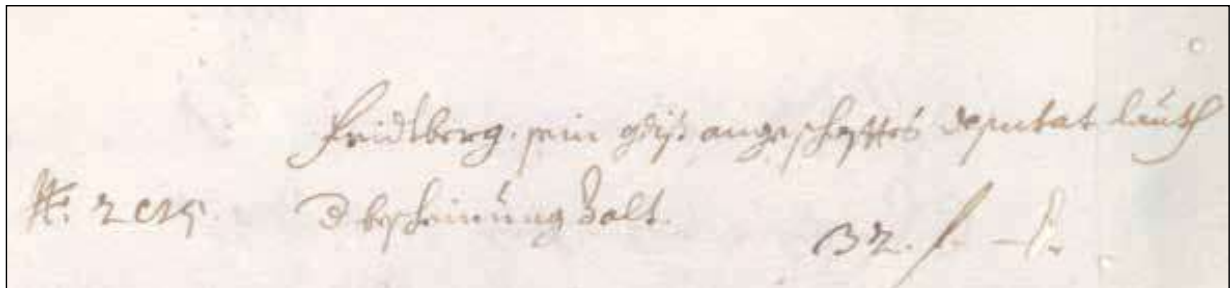 fridtberg. sein gdist angeschafftes deputat lauth
N. 2 bescheinung zalt.
32. f. –